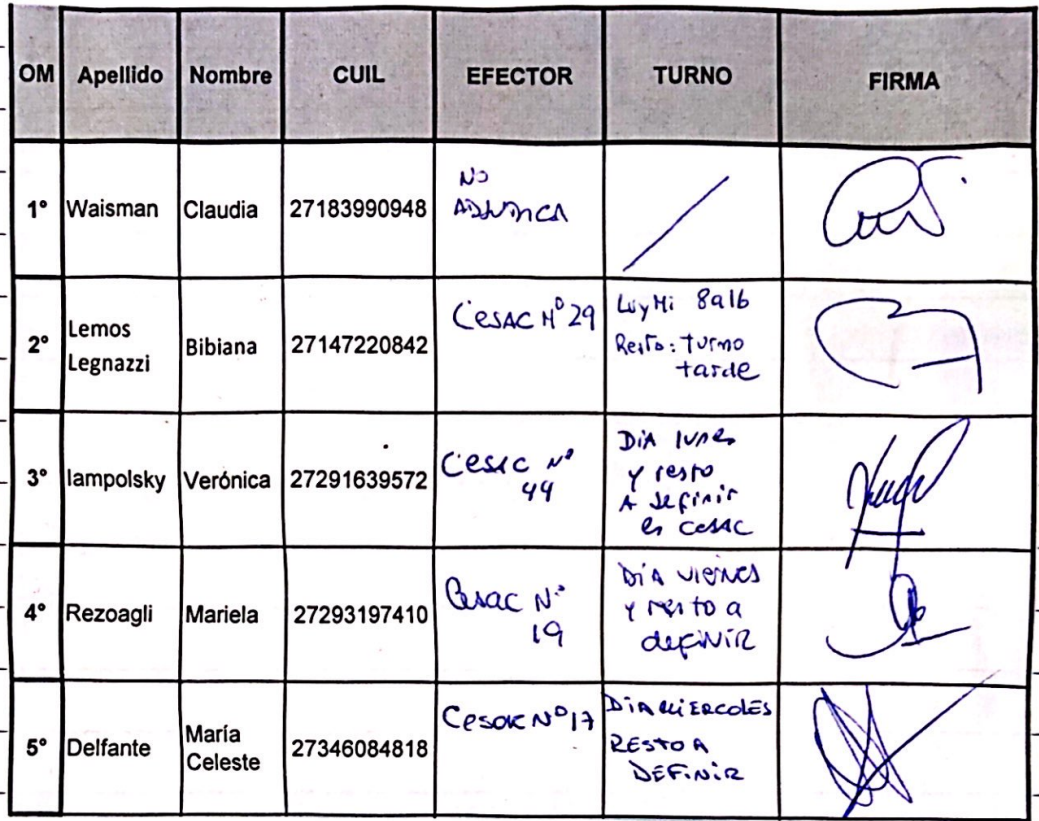 OM Apellido Nombre CUIL EFECTOR TURNO FIRMA
1° Waisman Claudia 27183990948 NO ADJUDICA
2° Lemos Legnazzi Bibiana 27147220842 CESAC Nº 29 LuyMi 8a16 Resto: turno tarde
3° Iampolsky Verónica 27291639572 Cesac Nº 44 DiA lunes y resto A definir en CeSAC
4° Rezoagli Mariela 27293197410 Cesac Nº 19 DiA viernes y resto a definir
5° Delfante María Celeste 27346084818 Cesac Nº 17 DiA MiERCOLES RESTO A DEFiNiR